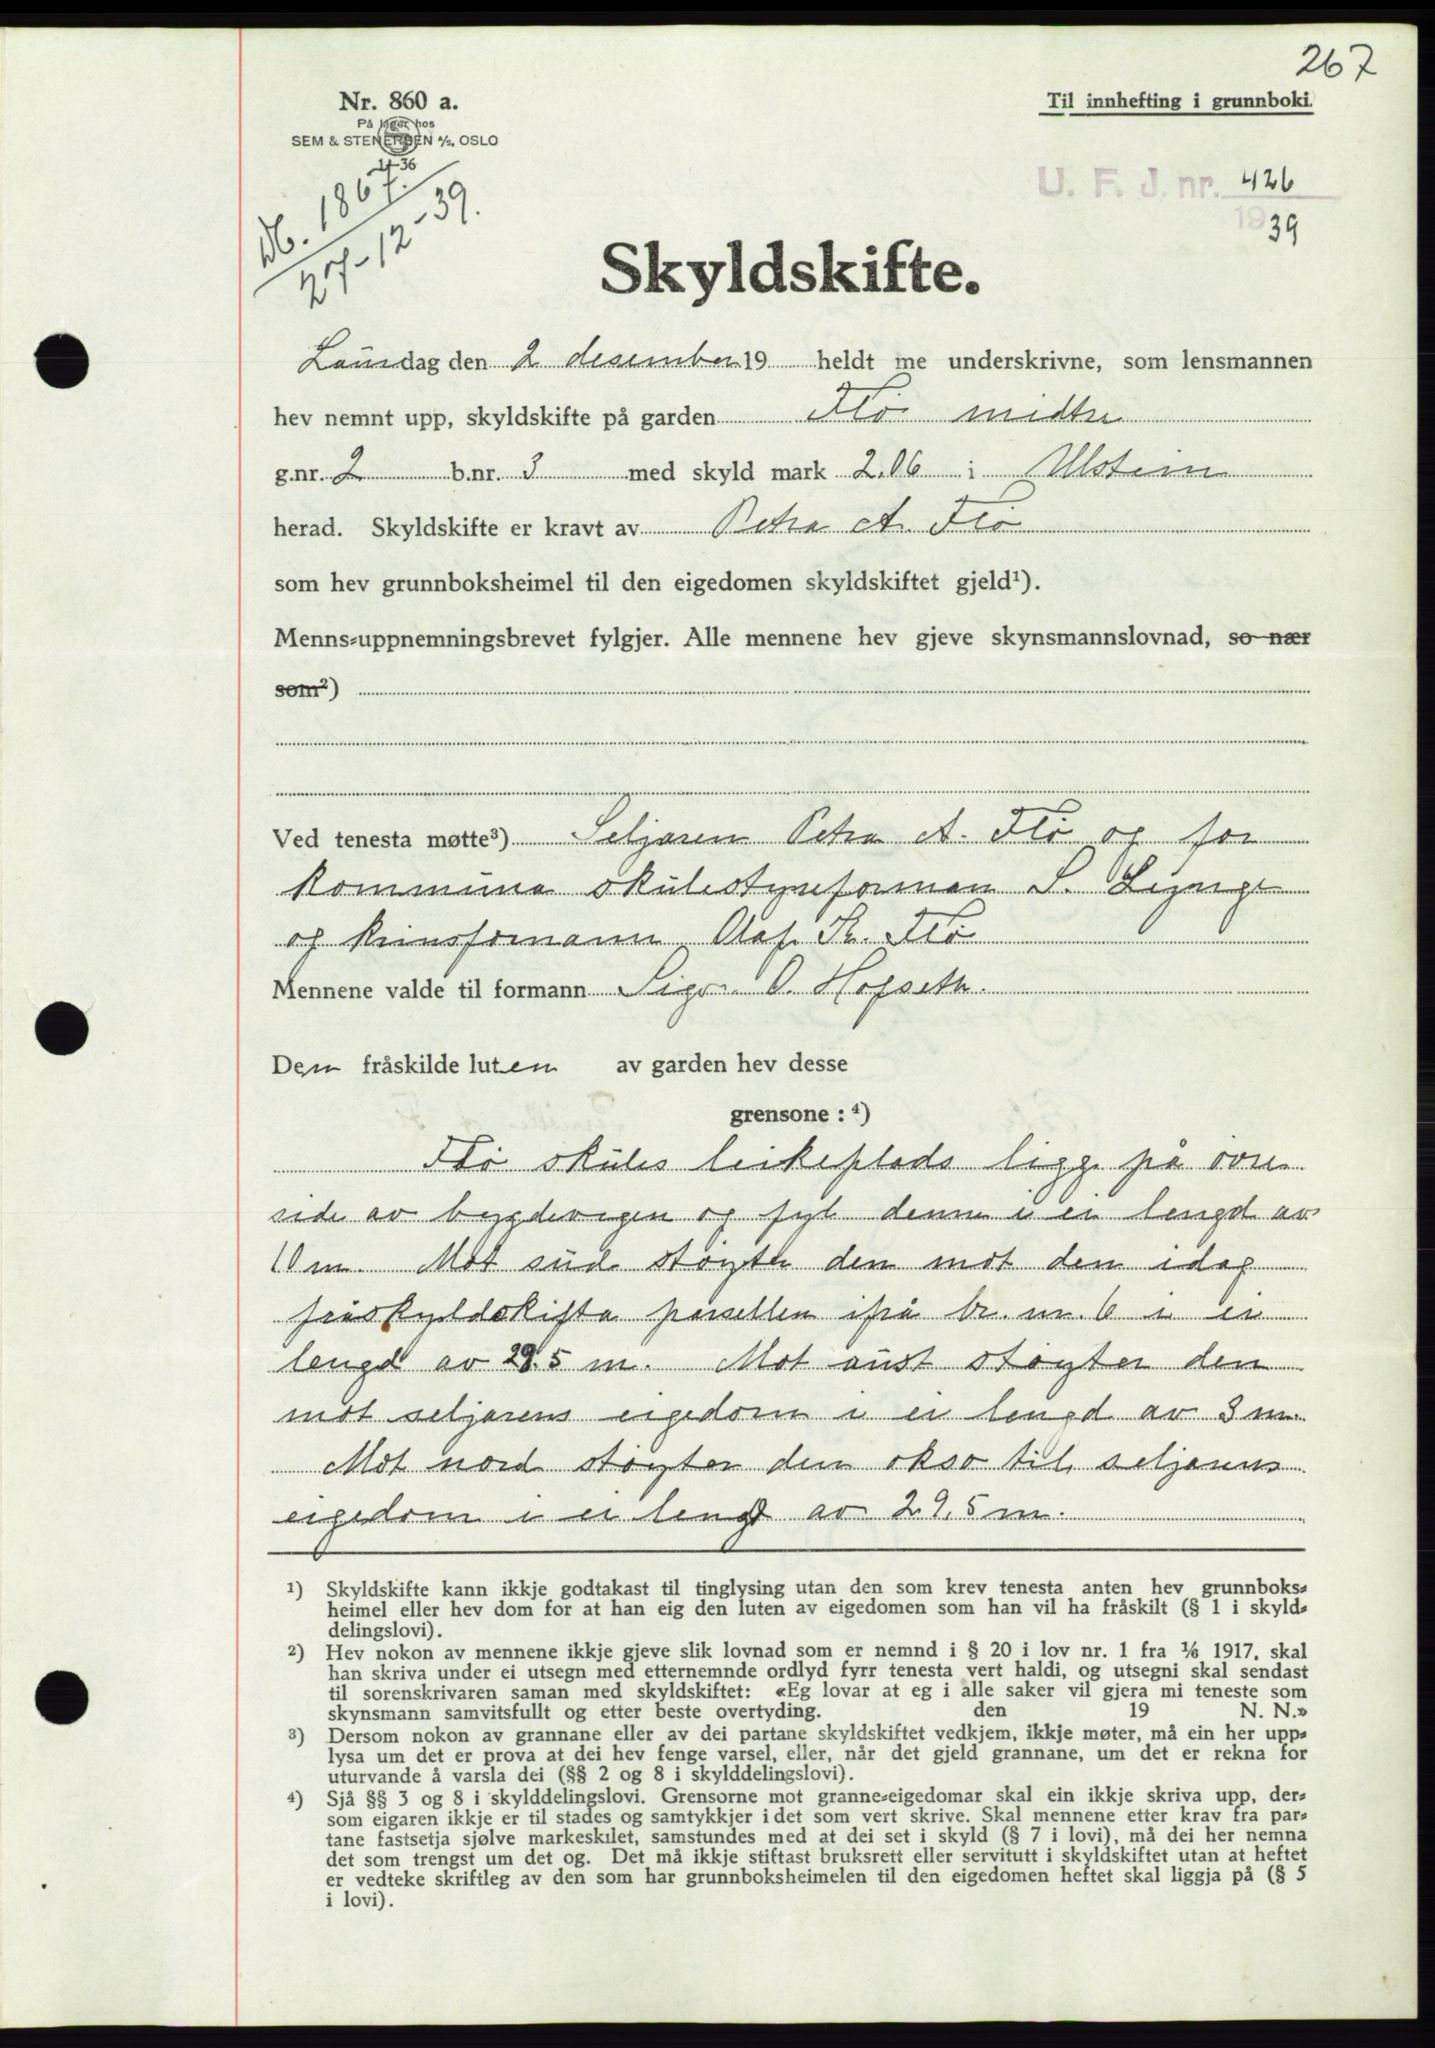 267
Nr. 860 a.
Til innhefting i grunnboki.
På lager hos
SEM & STENERSEN A/S, OSLO
4-36
Db. 1867.
27-12-39.
U. F. J. nr. 426
1939
Skyldskifte.
Laurdag den 2 desember 19 heldt me underskrivne, som lensmannen
hev nemnt upp, skyldskifte på garden Flø midtre
g.nr. 2 b.nr. 3 med skyld mark 2.06 i Ulstein
herad. Skyldskifte er kravt av Petra A. Flø
som hev grunnboksheimel til den eigedomen skyldskiftet gjeld¹).
Menns-uppnemningsbrevet fylgjer. Alle mennene hev gjeve skynsmannslovnad, so nær
som²)
Ved tenesta møtte³) Seljaren Petra A. Flø og for
kommuna skulestyreforman S. Ligange
og krinsformann Olaf Th. Flø
Mennene valde til formann Sigv. O. Hofseth.
Den fråskilde luten av garden hev desse
grensone : ⁴)
Flø skules leikeplads ligg på øvre
side av bygdevegen og fyl denne i ei lengd av
10 m. Mot süd støyter den mot den idag
fråskyldskifta parsellen ifrå br. nr. 6 i ei
lengd av 29.5 m. Mot aust støyter den
mot seljarens eigedom i ei lengd av 3 m.
Mot nord støyter den okso til seljarens
eigedom i ei lengd av 29,5 m.
¹) Skyldskifte kann ikkje godtakast til tinglysing utan den som krev tenesta anten hev grunnboks-
heimel eller hev dom for at han eig den luten av eigedomen som han vil ha fråskilt (§ 1 i skyld-
delingslovi).
²) Hev nokon av mennene ikkje gjeve slik lovnad som er nemnd i § 20 i lov nr. 1 fra 1/6 1917, skal
han skriva under ei utsegn med etternemnde ordlyd fyrr tenesta vert haldi, og utsegni skal sendast
til sorenskrivaren saman med skyldskiftet: «Eg lovar at eg i alle saker vil gjera mi teneste som
skynsmann samvitsfullt og etter beste overtyding. den 19 N. N.»
³) Dersom nokon av grannane eller av dei partane skyldskiftet vedkjem, ikkje møter, må ein her upp-
lysa um det er prova at dei hev fenge varsel, eller, når det gjeld grannane, um det er rekna for
uturvande å varsla dei (§§ 2 og 8 i skylddelingslovi).
⁴) Sjå §§ 3 og 8 i skylddelingslovi. Grensorne mot granne-eigedomar skal ein ikkje skriva upp, der-
som eigaren ikkje er til stades og samtykkjer i det som vert skrive. Skal mennene etter krav fra par-
tane fastsetja sjølve markeskilet, samstundes med at dei set i skyld (§ 7 i lovi), må dei her nemna
det som trengst um det og. Det må ikkje stiftast bruksrett eller servitutt i skyldskiftet utan at heftet
er vedteke skriftleg av den som har grunnboksheimelen til den eigedomen heftet skal liggja på (§ 5
i lovi).